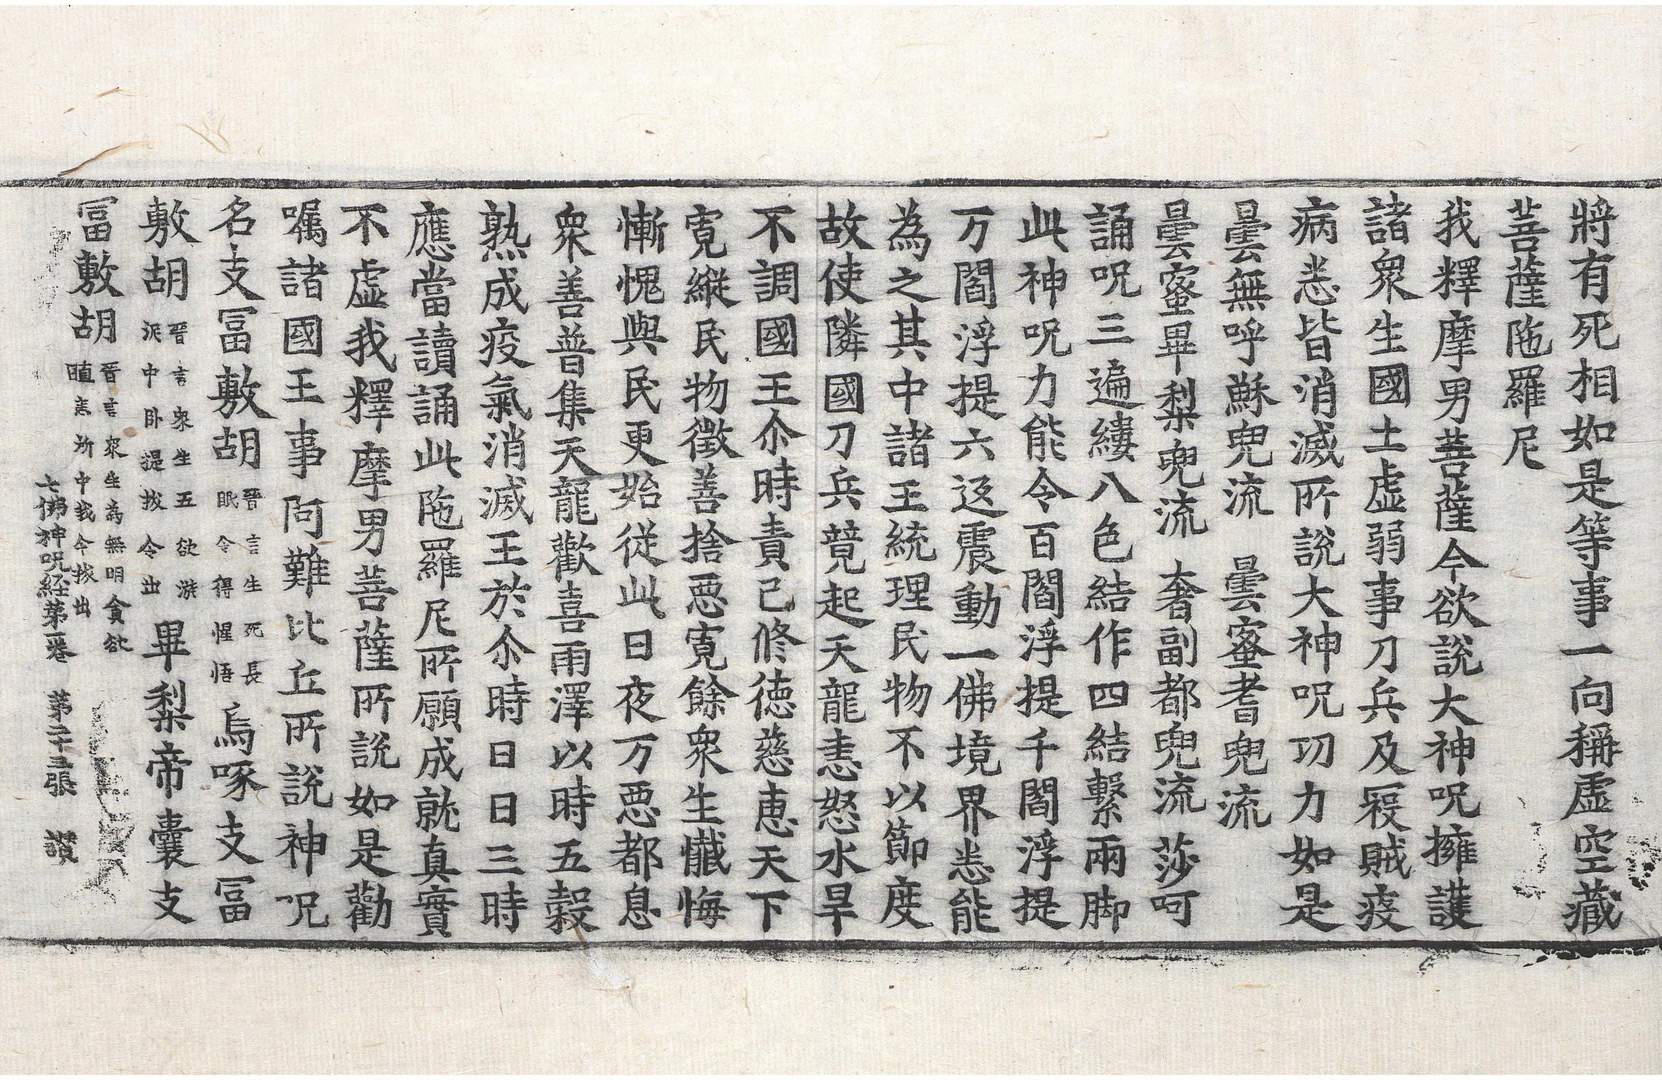 將有死相如是等事一向稱虛空藏
菩薩陁羅尼
我釋摩男菩薩今欲說大神呪擁護
諸衆生國土虛弱事刀兵及冣賊疫
病悉皆消滅所說大神呪功力如是
曇無呼穌兜流 曇蜜耆兜流
曇蜜畢梨兜流 奢副都兜流 莎呵
誦呪三遍縷八色結作四結繫兩脚
此神呪力能令百閻浮提千閻浮提
万閻浮提六返震動一佛境界悉能
為之其中諸王統理民物不以節度
故使隣國刀兵競起天龍恚怒水旱
不調國王尒時責己修德慈恵天下
寬縱民物徵善捨惡寬餘衆生懺悔
慚愧與民更始從此日夜万惡都息
衆善普集天龍歡喜雨澤以時五穀
熟成疫氣消滅王於尒時日日三時
應當讀誦此陁羅尼所願成就真實
不虛我釋摩男菩薩所說如是勸
囑諸國王事 阿難比丘所說神呪
名支冨敷胡 晉言生死長眠令得惺悟 烏啄支冨
敷胡 晉言衆生五欲淤泥中卧提拔令出 畢梨帝囊支
冨敷胡 晉言衆生為無明貪欲
恚所中我今拔出
七佛神呪經第一卷 第二十三張